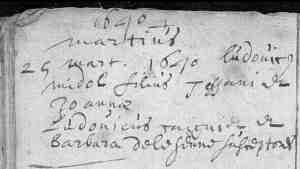 1640
martius
25 mart. 1640 ludovicus
midol filius Tossani et
Joannæ
Ludovicus et
Barbara susceptores